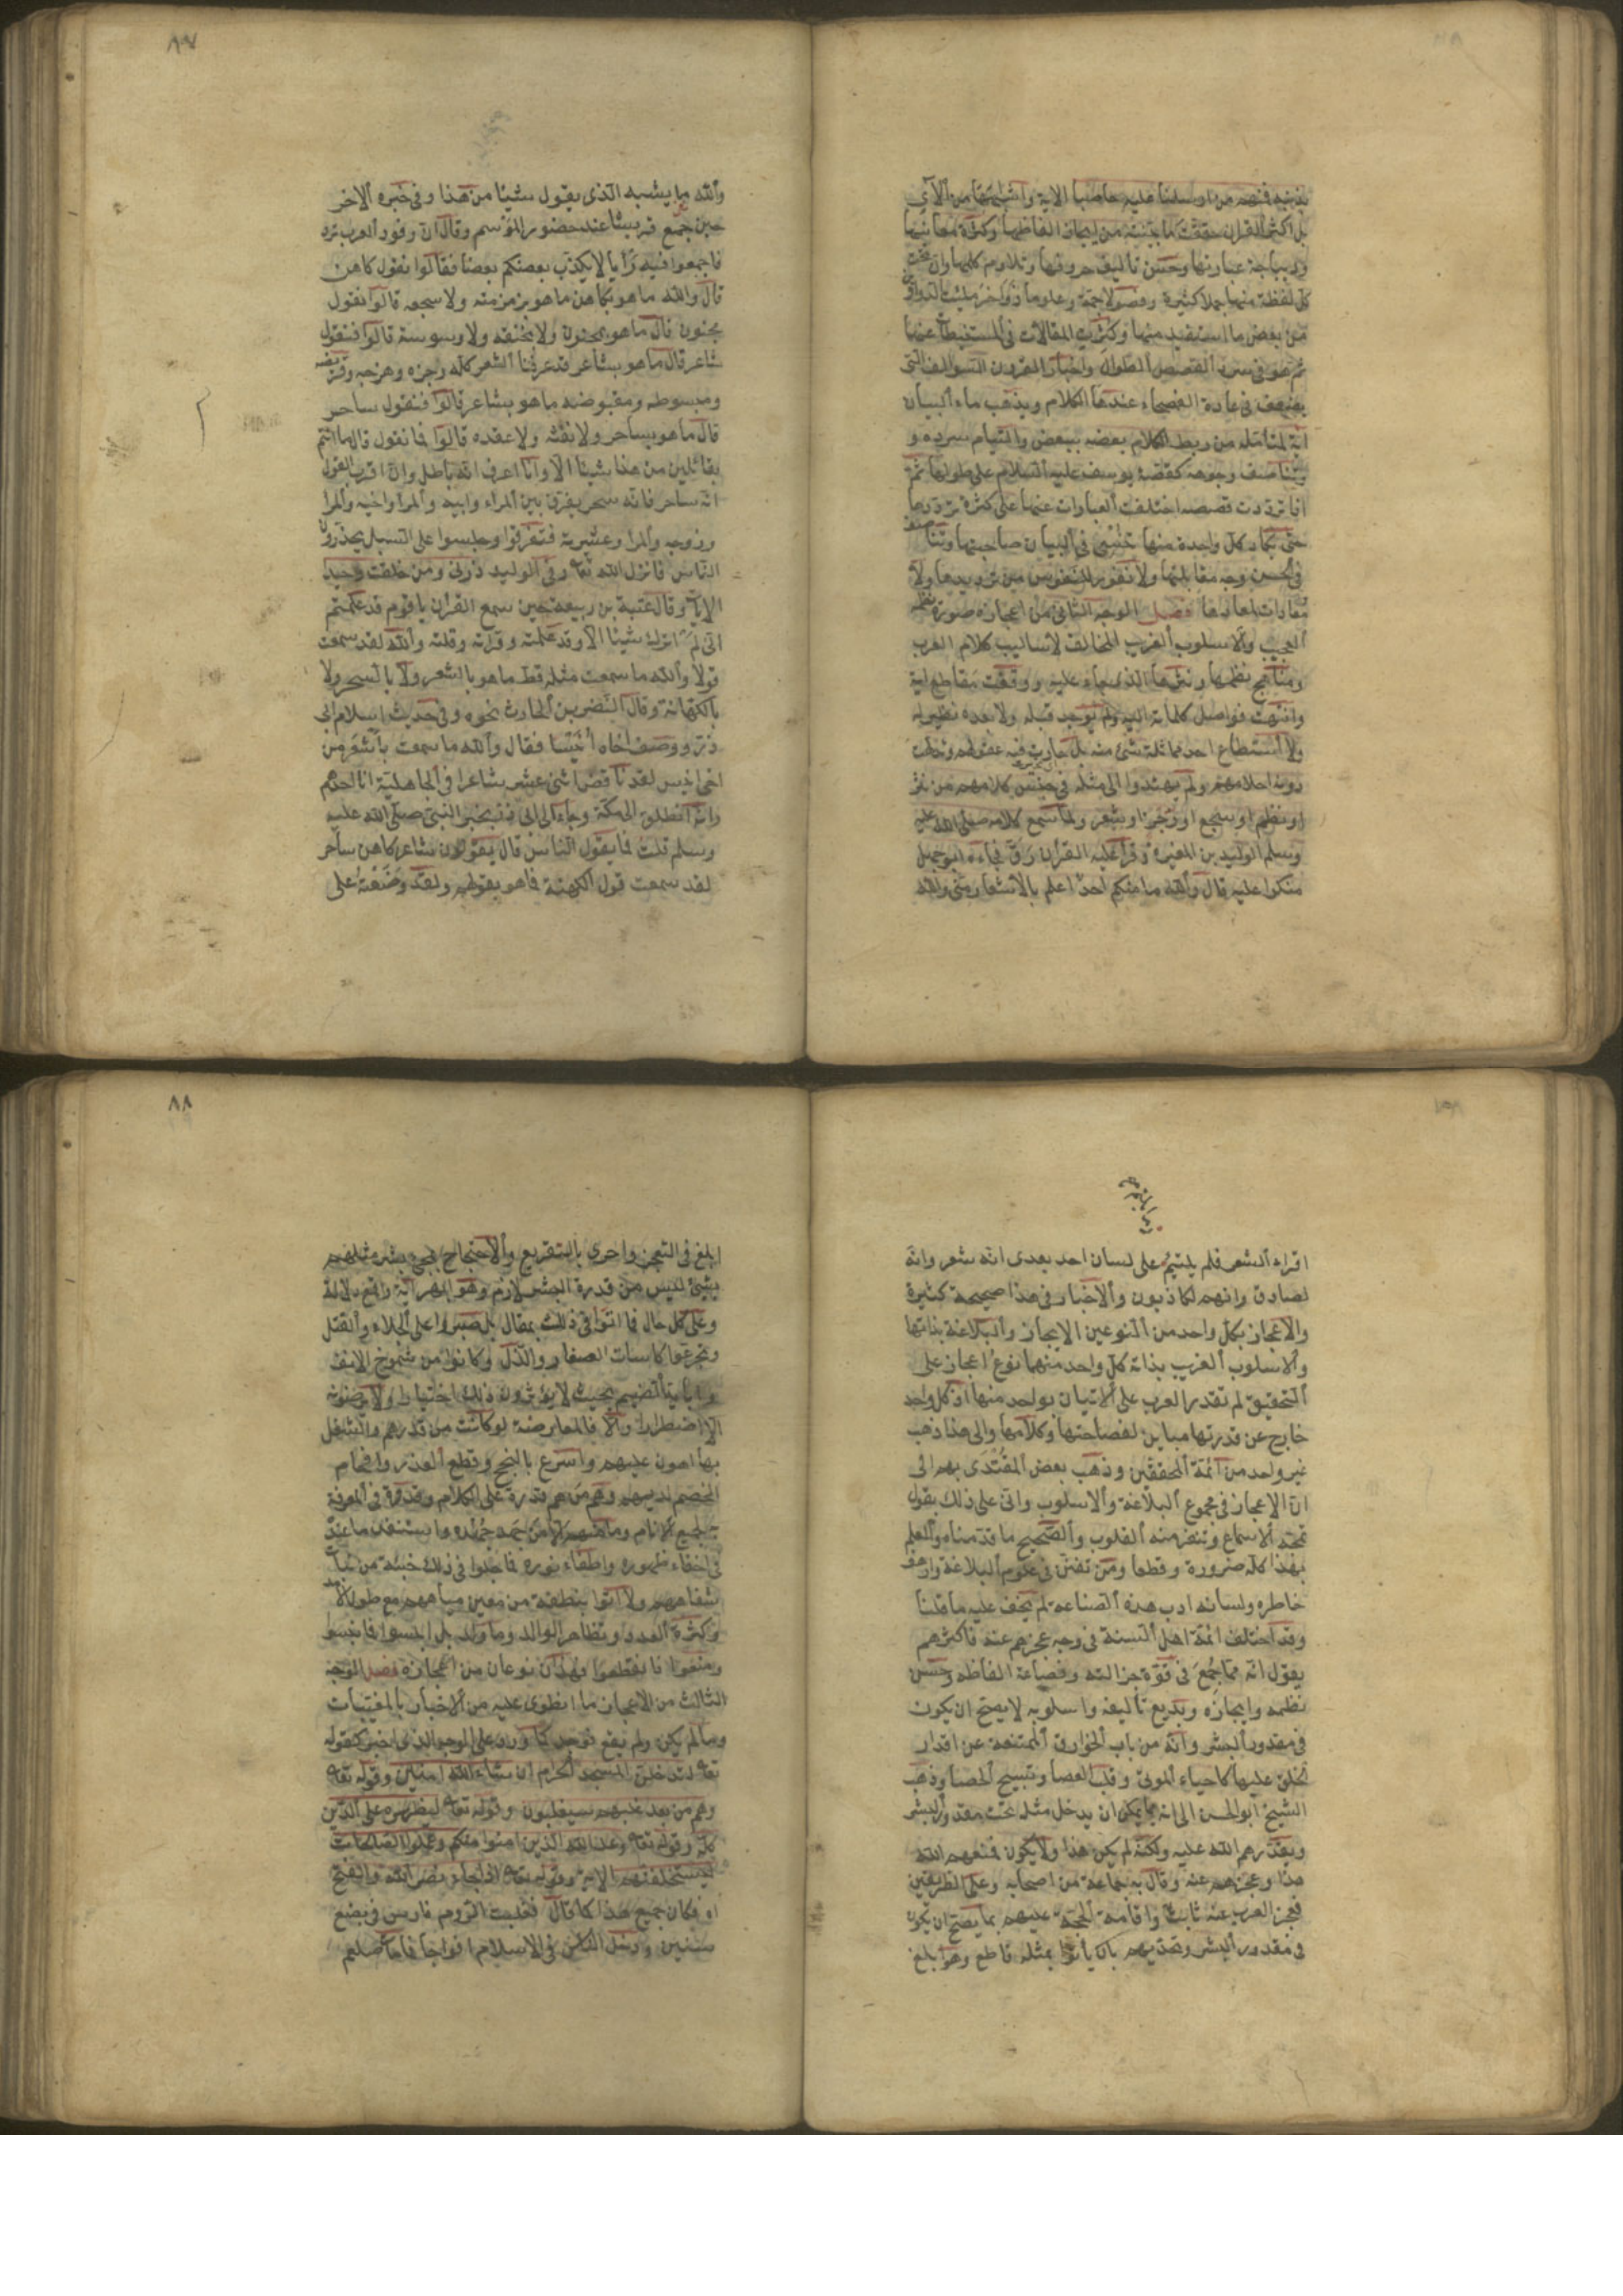 بذنبه فمنهم من ارسلنا عليه حاصبا الاية واشباهها من الآي
بل اكثر القران حققت ما بينته من ايجاز الفاظها وكثرة معانيها
وديباجة عبارتها وحسن تأليف حروفها وتلاوم كلمها وان تحت
كل لفظة منها جملا كثيرة وفصولا جمة وعلوما زواخر ملئت الدواوين
من بعض ما استفيد منها وكثرت المقالات في المستنبطات عنها
ثم هو في سرد القصص الطوال واخبار القرون السوالف التي
يضعف في عادة الفصحاء عندها الكلام ويذهب ماء البيان
اية لمتأمله من ربط الكلام بعضه ببعض والتيام سرده و
تناصف وجوهه كقصة يوسف عليه السلام على طولها ثم
اذا ترددت قصصه اختلفت العبارات عنها على كثرة ترددها
حتى تكاد كل واحدة منها تنسى في البيان صاحبتها وتناصف
في الحسن وجه مقابلتها ولا نفور للنفوس من ترديدها ولا
معادات لمعادها فصل الوجه الثاني من اعجازه صورة نظمه
العجيب والاسلوب الغريب المخالف لاساليب كلام العرب
ومناهج نظمها ونثرها الذي جاء عليه ووقفت مقاطع ايه
وانتهت فواصل كلماته اليه ولم يوجد قبله ولا بعده نظير له
ولا استطاع احد مماثلة شئ منه بل حارت فيه عقولهم وتدلهت
دونه احلامهم ولم يهتدوا الى مثله في جنس كلامهم من نثر
او نظم او سجع او رجز او شعر ولما سمع كلامه صلى الله عليه
وسلم الوليد بن المغيرة وقرأ عليه القران رق فجاءه ابوجهل
منكرا عليه قال والله ما منكم احد اعلم بالاشعار مني والله
٨٧
والله ما يشبه الذي يقول شيئا من هذا وفي خبره الاخر
حين جمع قريشا عند حضور الموسم وقال ان وفود العرب ترد
فاجمعوا فيه رأيا لا يكذب بعضكم بعضا فقالوا نقول كاهن
قال والله ما هو بكاهن ما هو بزمزمته ولا سجعه قالوا نقول
مجنون قال ما هو بمجنون ولا بخنقه ولا وسوسة قالوا فنقول
شاعر قال ما هو بشاعر قد عرفنا الشعر كله رجزه وهزجه وقريضه
ومبسوطه ومقبوضه ما هو بشاعر قالوا فنقول ساحر
قال ما هو بساحر ولا نفثه ولا عقده قالوا فما نقول قال ما انتم
بقائلين من هذا شيئا الا وانا اعرف انه باطل وان اقرب القول
انه ساحر فانه سحر يفرق بين المراء وابيه والمرا واخيه والمرا
وزوجه والمرا وعشيرته فتفرقوا وجلسوا على السبل يحذرون
الناس فانزل الله تعا في الوليد ذرني ومن خلقت وحيدا
الايآ وقال عتبة بن ربيعة حين سمع القران يا قوم قد علمتم
اني لم اترك شيئا الا وقد علمته وقرأته وقلته والله لقد سمعت
قولا والله ما سمعت مثله قط ما هو بالشعر ولا بالسحر ولا
بالكهانة وقال النضر بن الحارث نحوه وفي حديث اسلام ابي
ذر ووصف اخاه أنيسا فقال والله ما سمعت بأشعر من
اخي انيس لقد ناقض اثني عشر شاعرا في الجاهلية انا احدهم
وانه انطلق الى مكة وجاء الى ابي ذر بخبر النبي صلى الله عليه
وسلم قلت فما يقول الناس قال يقولون شاعر كاهن ساحر
لقد سمعت قول الكهنة فما هو بقولهم ولقد وضعته على
اقراء الشعر فلم يلتئم على لسان احد بعدي انه شعر وانه
لصادق وانهم لكاذبون والاخبار في هذا صحيحة كثيرة
والاعجاز بكل واحد من النوعين الايجاز والبلاغة بذاتها
والاسلوب الغريب بذاته كل واحد منهما نوع اعجاز على
التحقيق لم تقدر العرب على الاتيان بواحد منها اذ كل واحد
خارج عن قدرتها مباين لفصاحتها وكلامها والى هذا ذهب
غير واحد من ائمة المحققين وذهب بعض المقتدى بهم الى
ان الاعجاز في مجموع البلاغة والاسلوب واتى على ذلك بقول
تمجه الاسماع وتنفر منه القلوب والصحيح ما قدمناه والعلم
بهذا كله ضرورة وقطعا ومن تفنن في علوم البلاغة وارهف
خاطره ولسانه ادب هذه الصناعة لم يخف عليه ما قلنا
وقد اختلف ائمة اهل السنة في وجه عجزهم عنه فاكثرهم
يقول انه مما جمع في قوة جزالته وفصاعة الفاظه وحسن
نظمه وايجازه وبديع تأليفه واسلوبه لا يصح ان يكون
في مقدور البشر وانه من باب الخوارق الممتنعة عن اقدار
الخلق عليها كاحياء الموتى وقلب العصا وتسبيح الحصا وذهب
الشيخ ابوالحسن الى انه مما يمكن ان يدخل مثله تحت مقدور البشر
ويقدرهم الله عليه ولكنه لم يكن هذا ولا يكون فمنعهم الله
هذا وعجزهم عنه وقال به جماعة من اصحابه وعلى الطريقين
فعجز العرب عنه ثابت واقامة الحجة عليهم بما يصح ان يكون
في مقدور البشر وتحديهم بان يأتوا بمثله قاطع وهو ابلغ
٨٨
ابلغ في التعجيز واحرى بالتقريع والاحتجاج بمجئ بشر مثلهم
بشئ ليس من قدرة البشر لازم وهو ابهر اية واقمع دلالة
وعلى كل حال فما اتوا في ذلك بمقال بل صبروا على الجلاء والقتل
وتجرعوا كاسات الصغار والذل وكانوا من شموخ الانف
واباية الضيم بحيث لا يؤثرون ذلك اختيارا ولا يرضونه
الا اضطرارا والا فالمعارضة لو كانت من قدرهم والشغل
بها اهون عليهم واسرع بالنجح وقطع العذر وافحام
الخصم لديهم وهم من هم قدرة على الكلام وقدوة في المعرفة
به لجميع الانام وما منهم الا من جهد جهده واستنفد ما عنده
في اخفاء ظهوره واطفاء نوره فما جلوا في ذلك خبيئة من بنات
شفاههم ولا اتوا بنطفة من معين مياههم مع طول الامد
وكثرة العدد وتظاهر الوالد وما ولد بل ابلسوا فما نبسوا
ومنعوا فانقطعوا فهذان نوعان من اعجازه فصل الوجه
الثالث من الاعجاز ما انطوى عليه من الاخبار بالمغيبات
وما لم يكن ولم يقع فوجد كما ورد على الوجه الذي اخبر كقوله
تعا لتدخلن المسجد الحرام ان شاء الله امنين وقوله تعا
وهم من بعد غلبهم سيغلبون وقوله تعا ليظهره على الدين
كله وقوله تعا وعد الله الذين امنوا منكم وعملوا الصالحات
ليستخلفنهم الاية وقوله تعا اذا جاء نصر الله والفتح
اه فكان جميع هذا كما قال فغلبت الروم فارس في بضع
سنين ودخل الناس في الاسلام افواجا فما مات صلعم